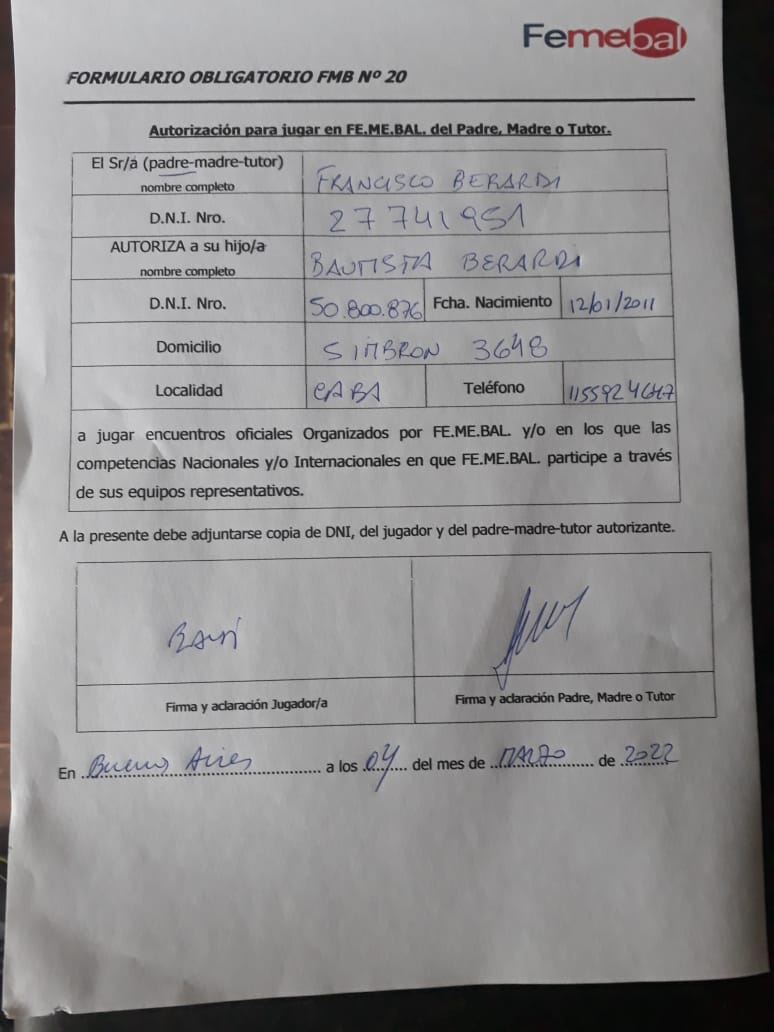 Femebal
FORMULARIO OBLIGATORIO FMB Nº 20
Autorización para jugar en FE.ME.BAL. del Padre, Madre o Tutor.
El Sr/a (padre-madre-tutor)
nombre completo
FRANCISCO BERARDI
D.N.I. Nro.
27741951
AUTORIZA a su hijo/a
nombre completo
BAUTISTA BERARDI
D.N.I. Nro.
50.800.876
Fcha. Nacimiento
12/01/2011
Domicilio
SIMBRON 3648
Localidad
CABA
Teléfono
a jugar encuentros oficiales Organizados por FE.ME.BAL. y/o en los que las
competencias Nacionales y/o Internacionales en que FE.ME.BAL. participe a través
de sus equipos representativos.
A la presente debe adjuntarse copia de DNI, del jugador y del padre-madre-tutor autorizante.
Firma y aclaración Jugador/a
Firma y aclaración Padre, Madre o Tutor
En Buenos Aires a los 04 del mes de MARZO de 2022